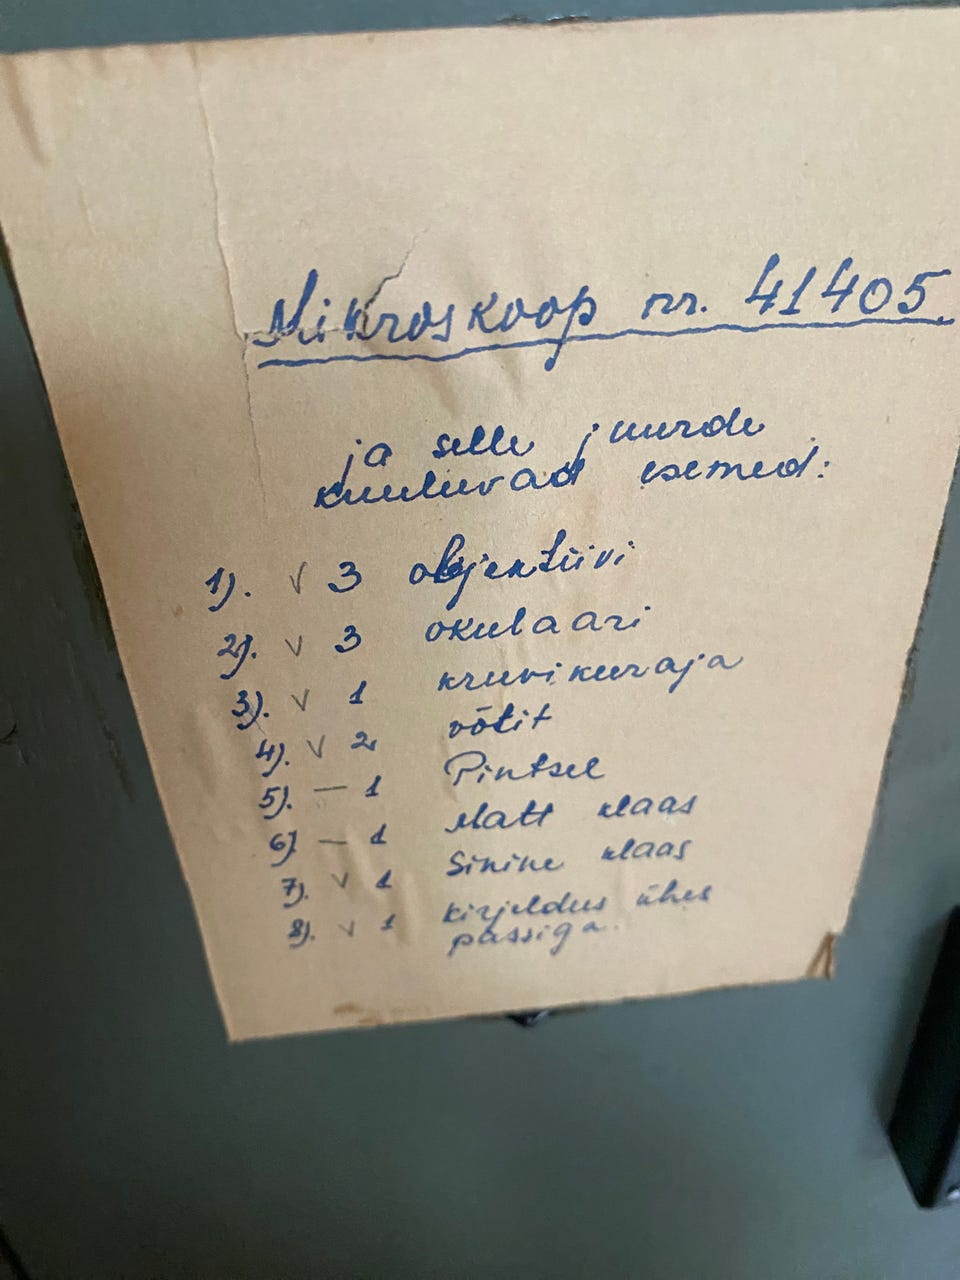 Mikroskoop nr. 41405.
ja selle juurde
kuuluvad esemed:
1). v 3 objektiivi
2). v 3 okulaari
3). v 1 kruvikeeraja
4). v 2 võtit
5). — 1 Pintsel
6) — 1 Matt klaas
7). v 1 Sinine klaas
8). v 1 kirjeldus ühes
passiga.